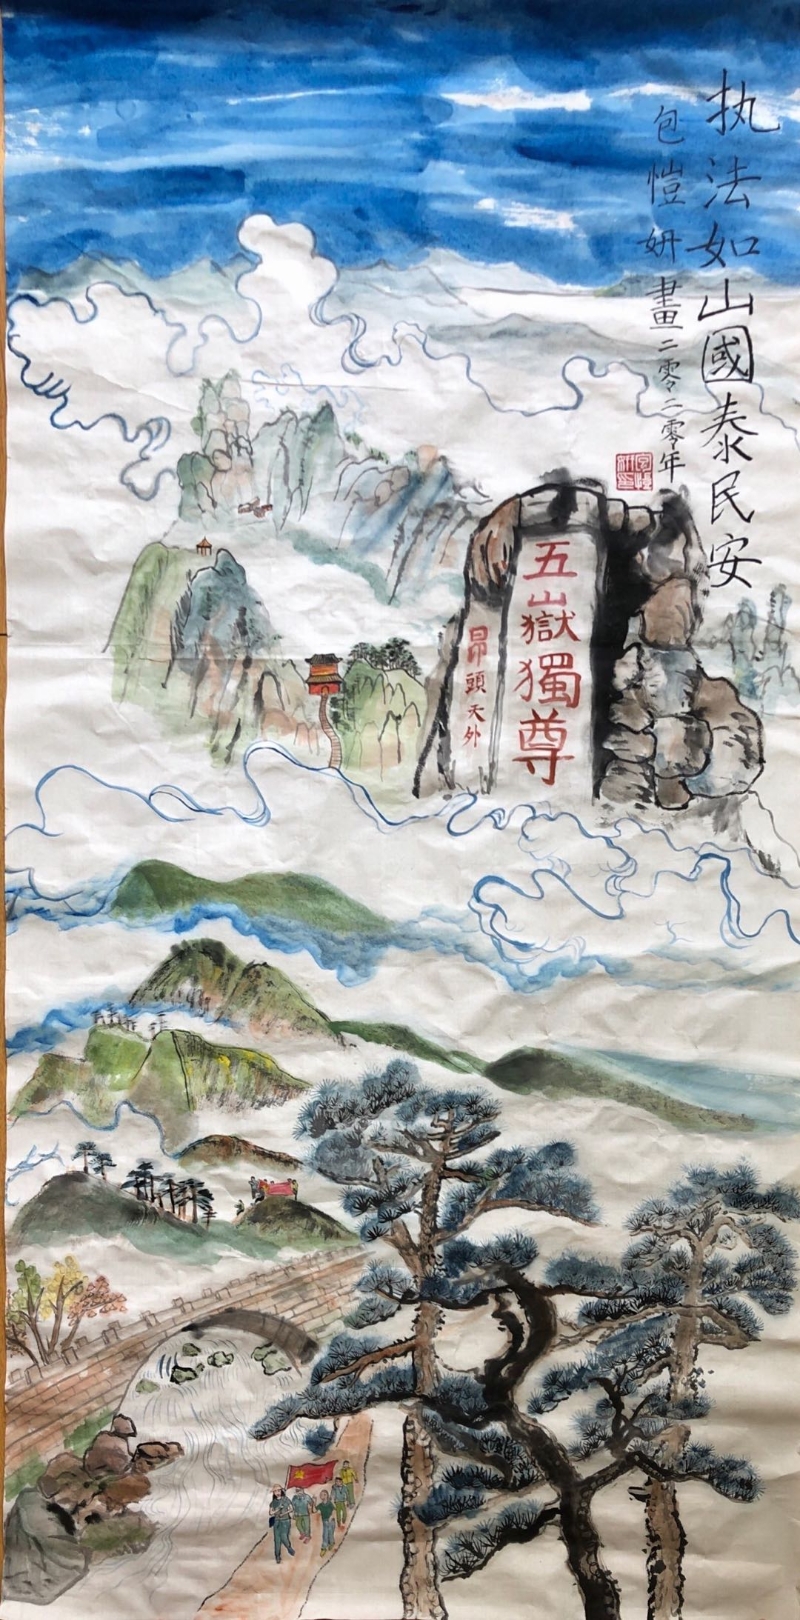 执法如山國泰民安
包愷妍畫二零二零年
五嶽獨尊
昂頭天外